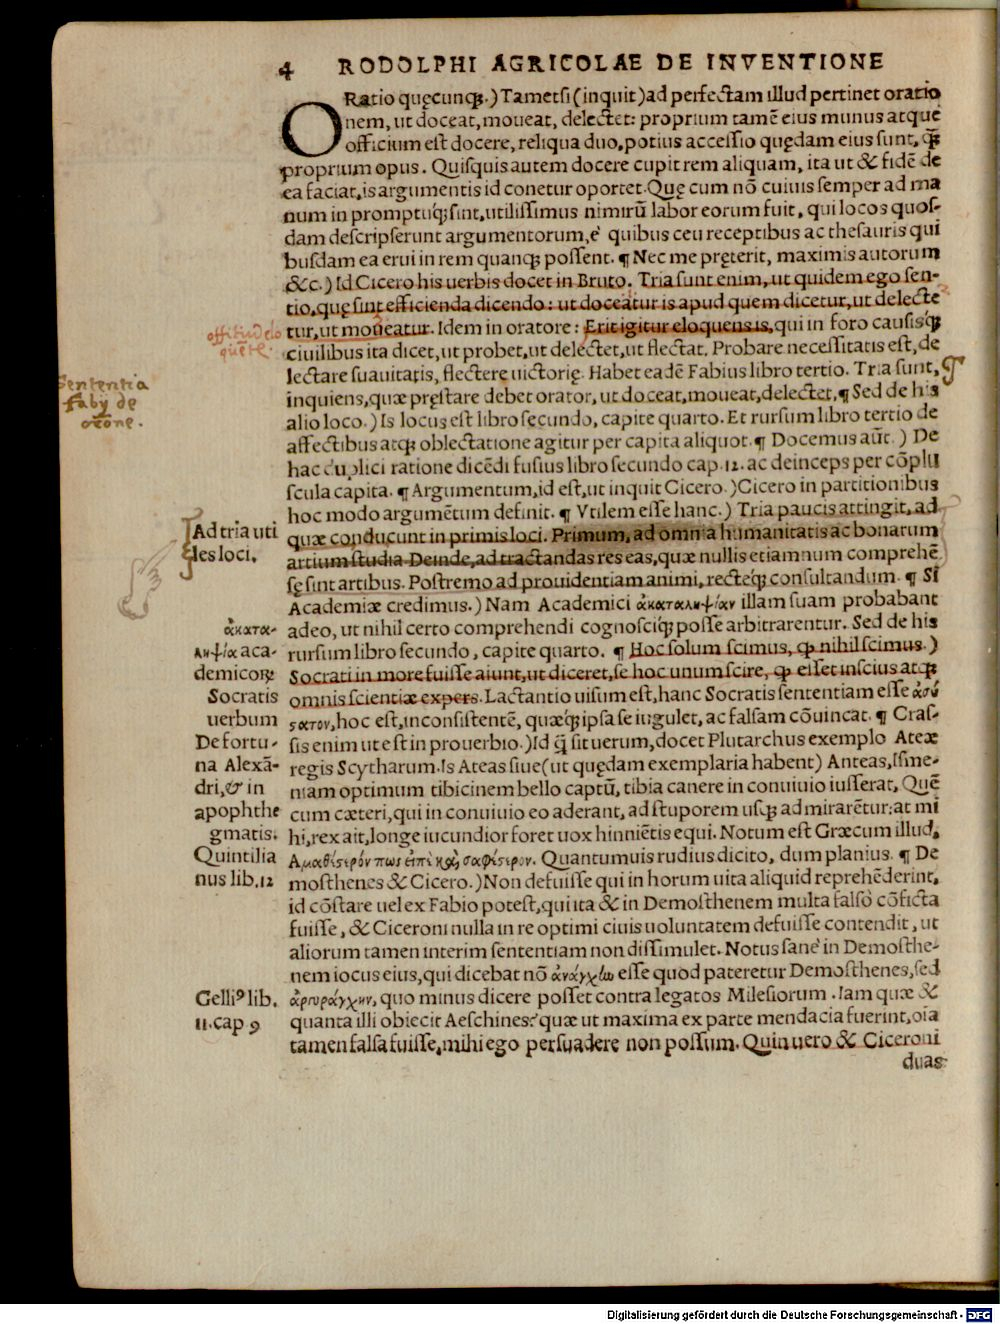 4 RODOLPHI AGRICOLAE DE INVENTIONE
ORatio quęcunq́ꝫ.) Tametsi (inquit) ad perfectam illud pertinet oratio
nem, ut doceat, moueat, delectet: proprium tamẽ eius munus atque
officium est docere, reliqua duo, potius accessio quędam eius sunt, q̃ꝫ
proprium opus. Quisquis autem docere cupit rem aliquam, ita ut & fidẽ de
ea faciat, is argumentis id conetur oportet. Quę cum nõ cuiuis semper ad ma
num in promptuq́ꝫ sint, utilissimus nimirũ labor eorum fuit, qui locos quos-
dam descripserunt argumentorum, è quibus ceu receptibus ac thesauris qui
busdam ea erui in rem quanq́ꝫ possent. ¶ Nec me pręterit, maximis autorum
&c.) Id Cicero his uerbis docet in Bruto. Tria sunt enim, ut quidem ego sen-
tio, quę sint efficienda dicendo: ut doceatur is apud quem dicetur, ut delecte
tur, ut moueatur. Idem in oratore: Erit igitur eloquens is, qui in foro causisq́ꝫ
offitiũ elo
quẽte.
ciuilibus ita dicet, ut probet, ut delectet, ut flectat. Probare necessitatis est, de
lectare suauitatis, flectere uictorię. Habet eadẽ Fabius libro tertio. Tria sunt,
Sententia
fabij de
orõne.
inquiens, quæ pręstare debet orator, ut doceat, moueat, delectet. ¶ Sed de his
alio loco.) Is locus est libro secundo, capite quarto. Et rursum libro tertio de
affectibus atq́ꝫ oblectatione agitur per capita aliquot. ¶ Docemus aũt. ) De
hac duplici ratione dicẽdi fusius libro secundo cap. 12. ac deinceps per cõplu
scula capita. ¶ Argumentum, id est, ut inquit Cicero.) Cicero in partitionibus
hoc modo argumẽtum definit. ¶ Vtilem esse hanc.) Tria paucis attingit, ad
Ad tria uti
les loci.
quæ conducunt in primis loci. Primum, ad omnia humanitatis ac bonarum
artium studia. Deinde, ad tractandas res eas, quæ nullis etiamnum comprehẽ
sę sint artibus. Postremo ad prouidentiam animi, recteq́ꝫ consultandum. ¶ Si
Academiæ credimus.) Nam Academici ἀκαταληψίαν illam suam probabant
ἀκατα-
ληψία aca-
demicorꝫ
adeo, ut nihil certo comprehendi cognosciq́ꝫ posse arbitrarentur. Sed de his
rursum libro secundo, capite quarto. ¶ Hoc solum scimus, ꝙ nihil scimus.)
Socrati in more fuisse aiunt, ut diceret, se hoc unum scire, ꝙ esset inscius atq́ꝫ
Socratis
uerbum
omnis scientiæ expers. Lactantio uisum est, hanc Socratis sententiam esse ἀσύ
ςατον, hoc est, inconsistentẽ, quæq́ꝫ ipsa se iugulet, ac falsam cõuincat. ¶ Cras-
sis enim ut est in prouerbio.) Id q̃ sit uerum, docet Plutarchus exemplo Ateæ
De fortu-
na Alexã-
dri, & in
apophthe
gmatis.
regis Scytharum. Is Ateas siue (ut quędam exemplaria habent) Anteas, Isme-
niam optimum tibicinem bello captũ, tibia canere in conuiuio iusserat. Quẽ
cum cæteri, qui in conuiuio eo aderant, ad stuporem usq́ꝫ ad mirarẽtur: at mi
hi, rex ait, longe iucundior foret uox hinniẽtis equi. Notum est Græcum illud,
Quintilia
nus lib. 12
Αμαθέςερόν πως εἰπὲ καὶ σαφέςερον. Quantumuis rudius dicito, dum planius. ¶ De
mosthenes & Cicero.) Non defuisse qui in horum uita aliquid reprehẽderint,
id cõstare uel ex Fabio potest, qui ita & in Demosthenem multa falsò cõficta
fuisse, & Ciceroni nulla in re optimi ciuis uoluntatem defuisse contendit, ut
aliorum tamen interim sententiam non dissimulet. Notus sanè in Demosthe-
nem iocus eius, qui dicebat nõ ἀνάγχω esse quod pateretur Demosthenes, sed
Gelliꝰ lib.
11. cap 9
ἀργυράγχην, quo minus dicere posset contra legatos Milesiorum. Iam quæ &
quanta illi obiecit Aeschines? quæ ut maxima ex parte mendacia fuerint, oĩa
tamen falsa fuisse, mihi ego persuadere non possum. Quin uero & Ciceroni
duas
Digitalisierung gefördert durch die Deutsche Forschungsgemeinschaft - DFG